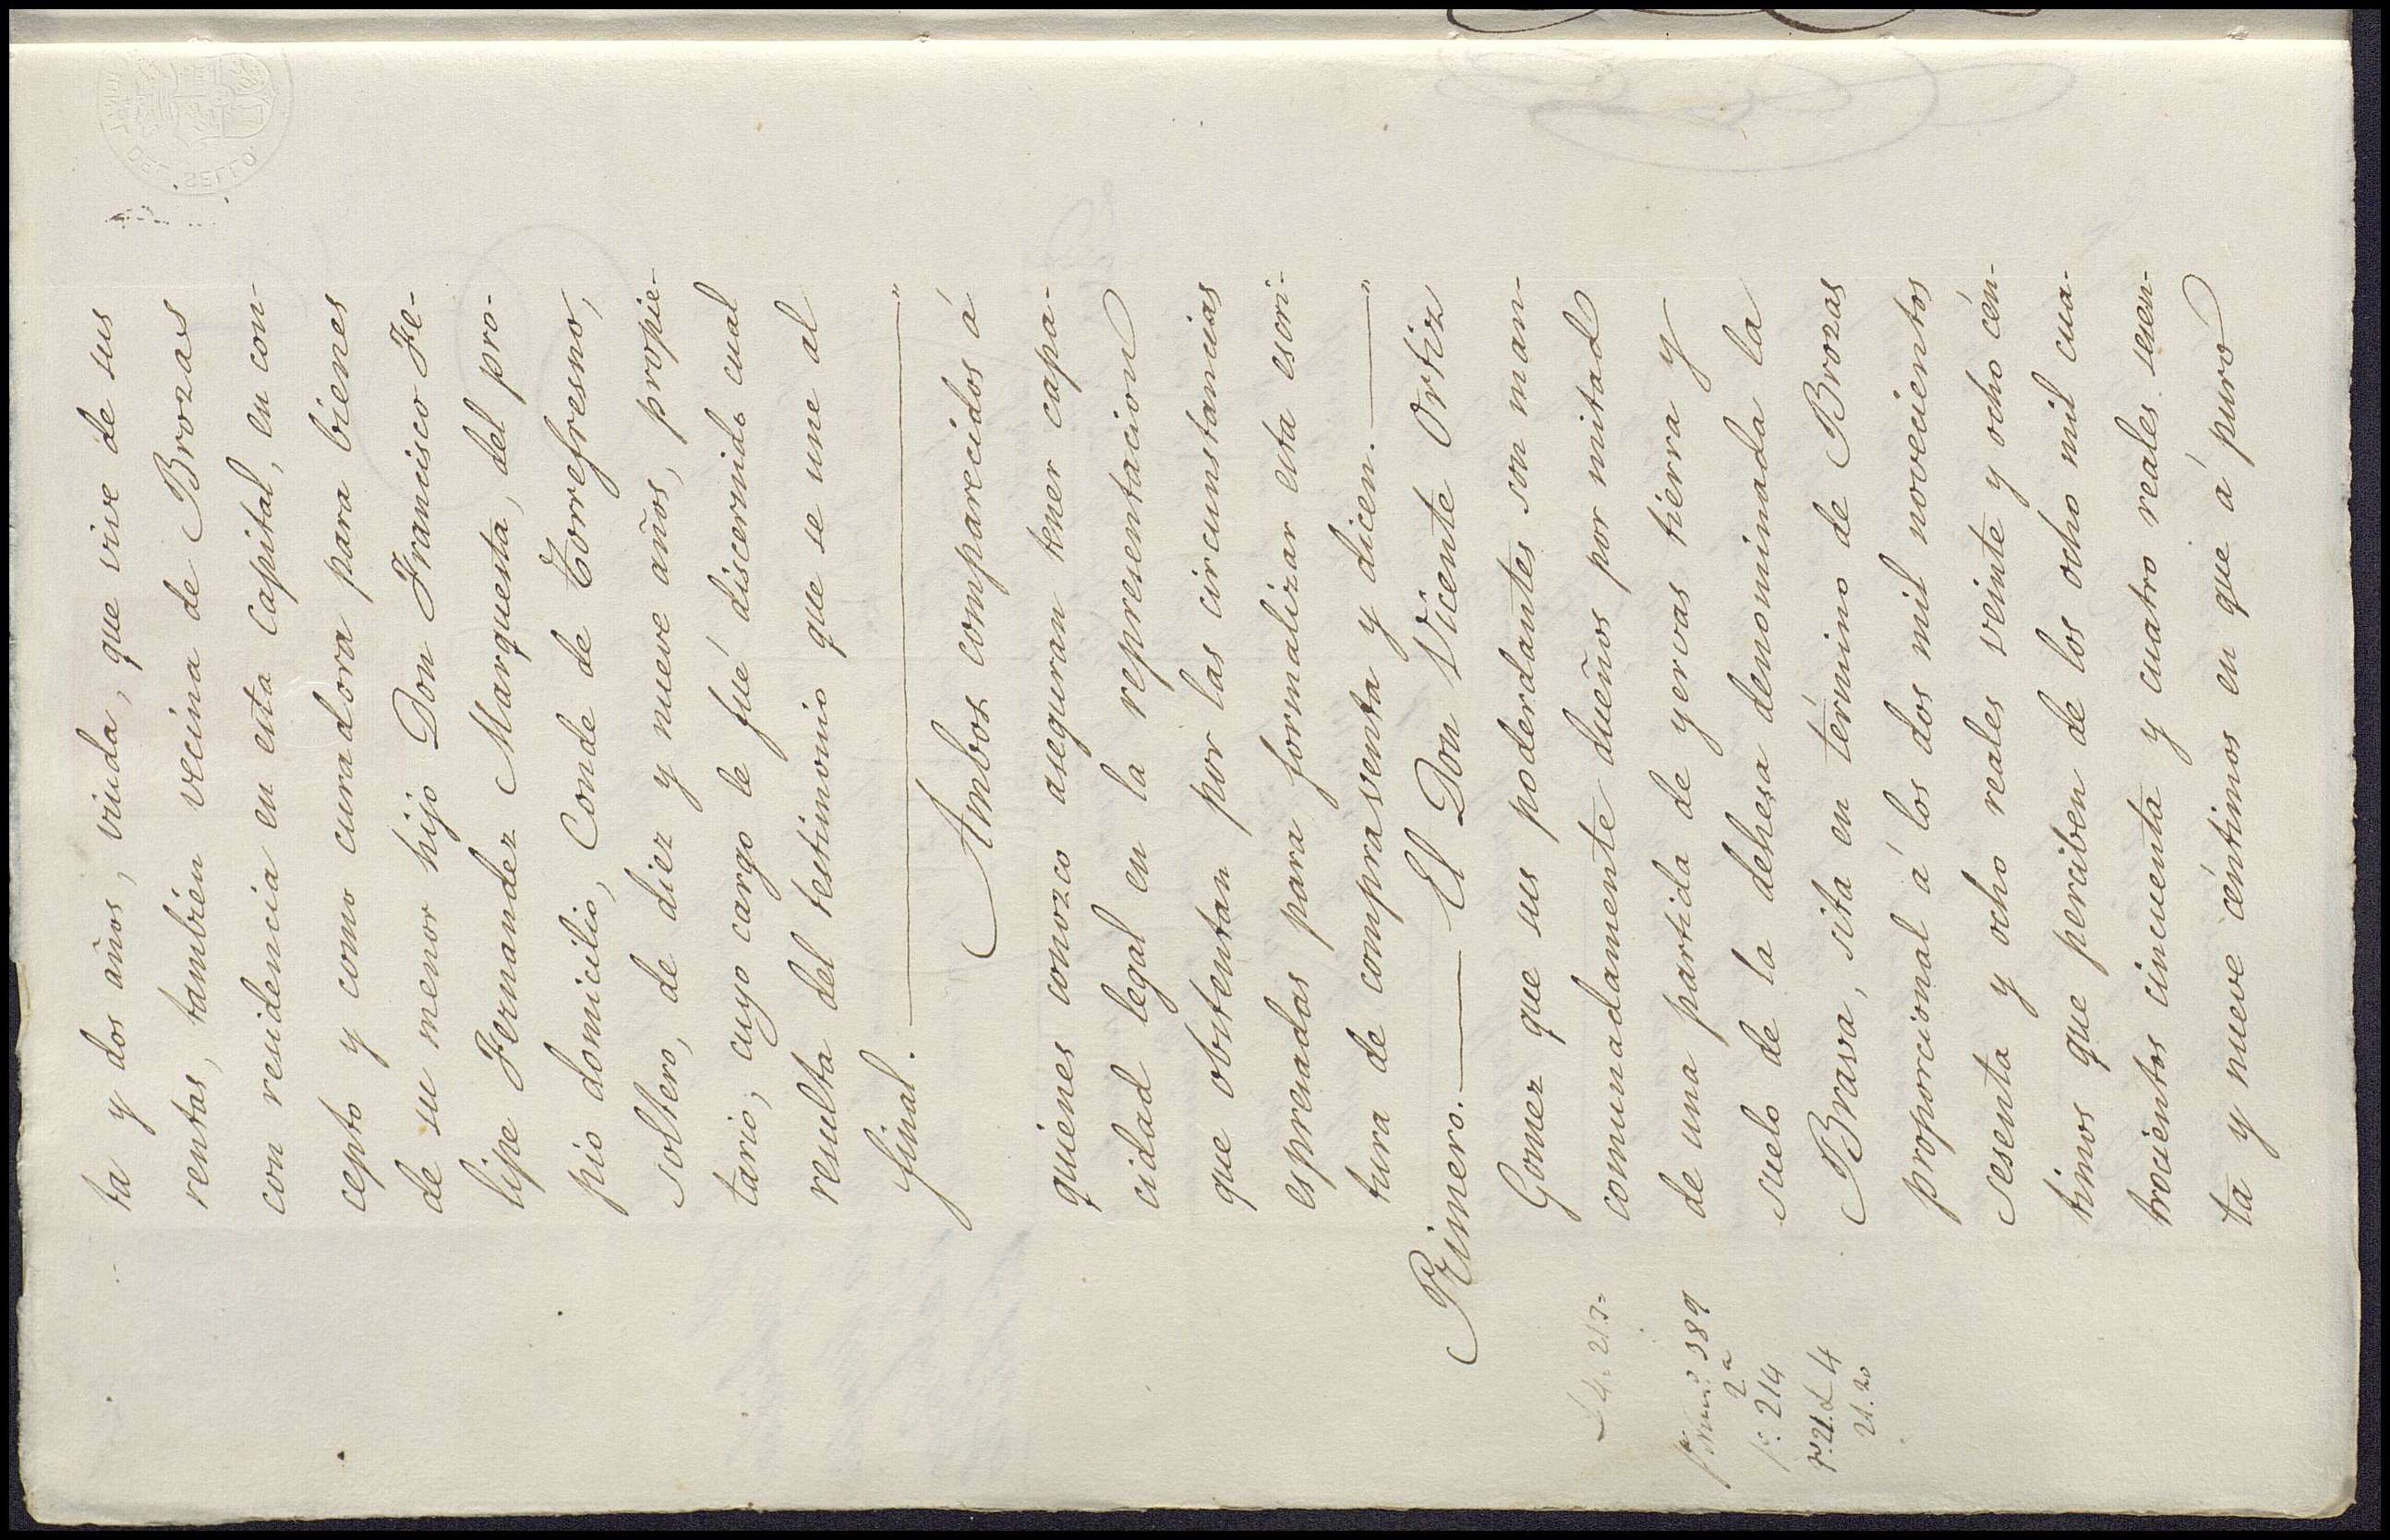 ta y dos años, viuda, que vive de sus
rentas, tambien vecina de Brozas
con residencia en esta Capital, en con-
cepto y como curadora para bienes
de su menor hijo Don Francisco Fe-
lipe Fernandez Marquesta, del pro-
pio domicilio, Conde de Torrefresno,
soltero, de diez y nueve años, propie-
tario; cuyo cargo le fué discernido cual
resulta del testimonio que se une al
final.
Ambos comparecidos á
quienes conozco aseguran tener capa-
cidad legal en la representacion
que obstentan por las circunstancias
espresadas para formalizar esta escri-
tura de compra venta y dicen.
Primero. El Don Vicente Ortiz
Gomez que sus poderdantes son man-
comunadamente dueños por mitad
de una partida de yervas tierra y
suelo de la dehesa denominada la
Brava, sita en término de Brozas
proporcional á los dos mil novecientos
sesenta y ocho reales veinte y ocho cén-
timos que perciben de los ocho mil cua-
trocientos cincuenta y cuatro reales sesen-
ta y nueve céntimos en que á puro
389
2ª
fº. 214